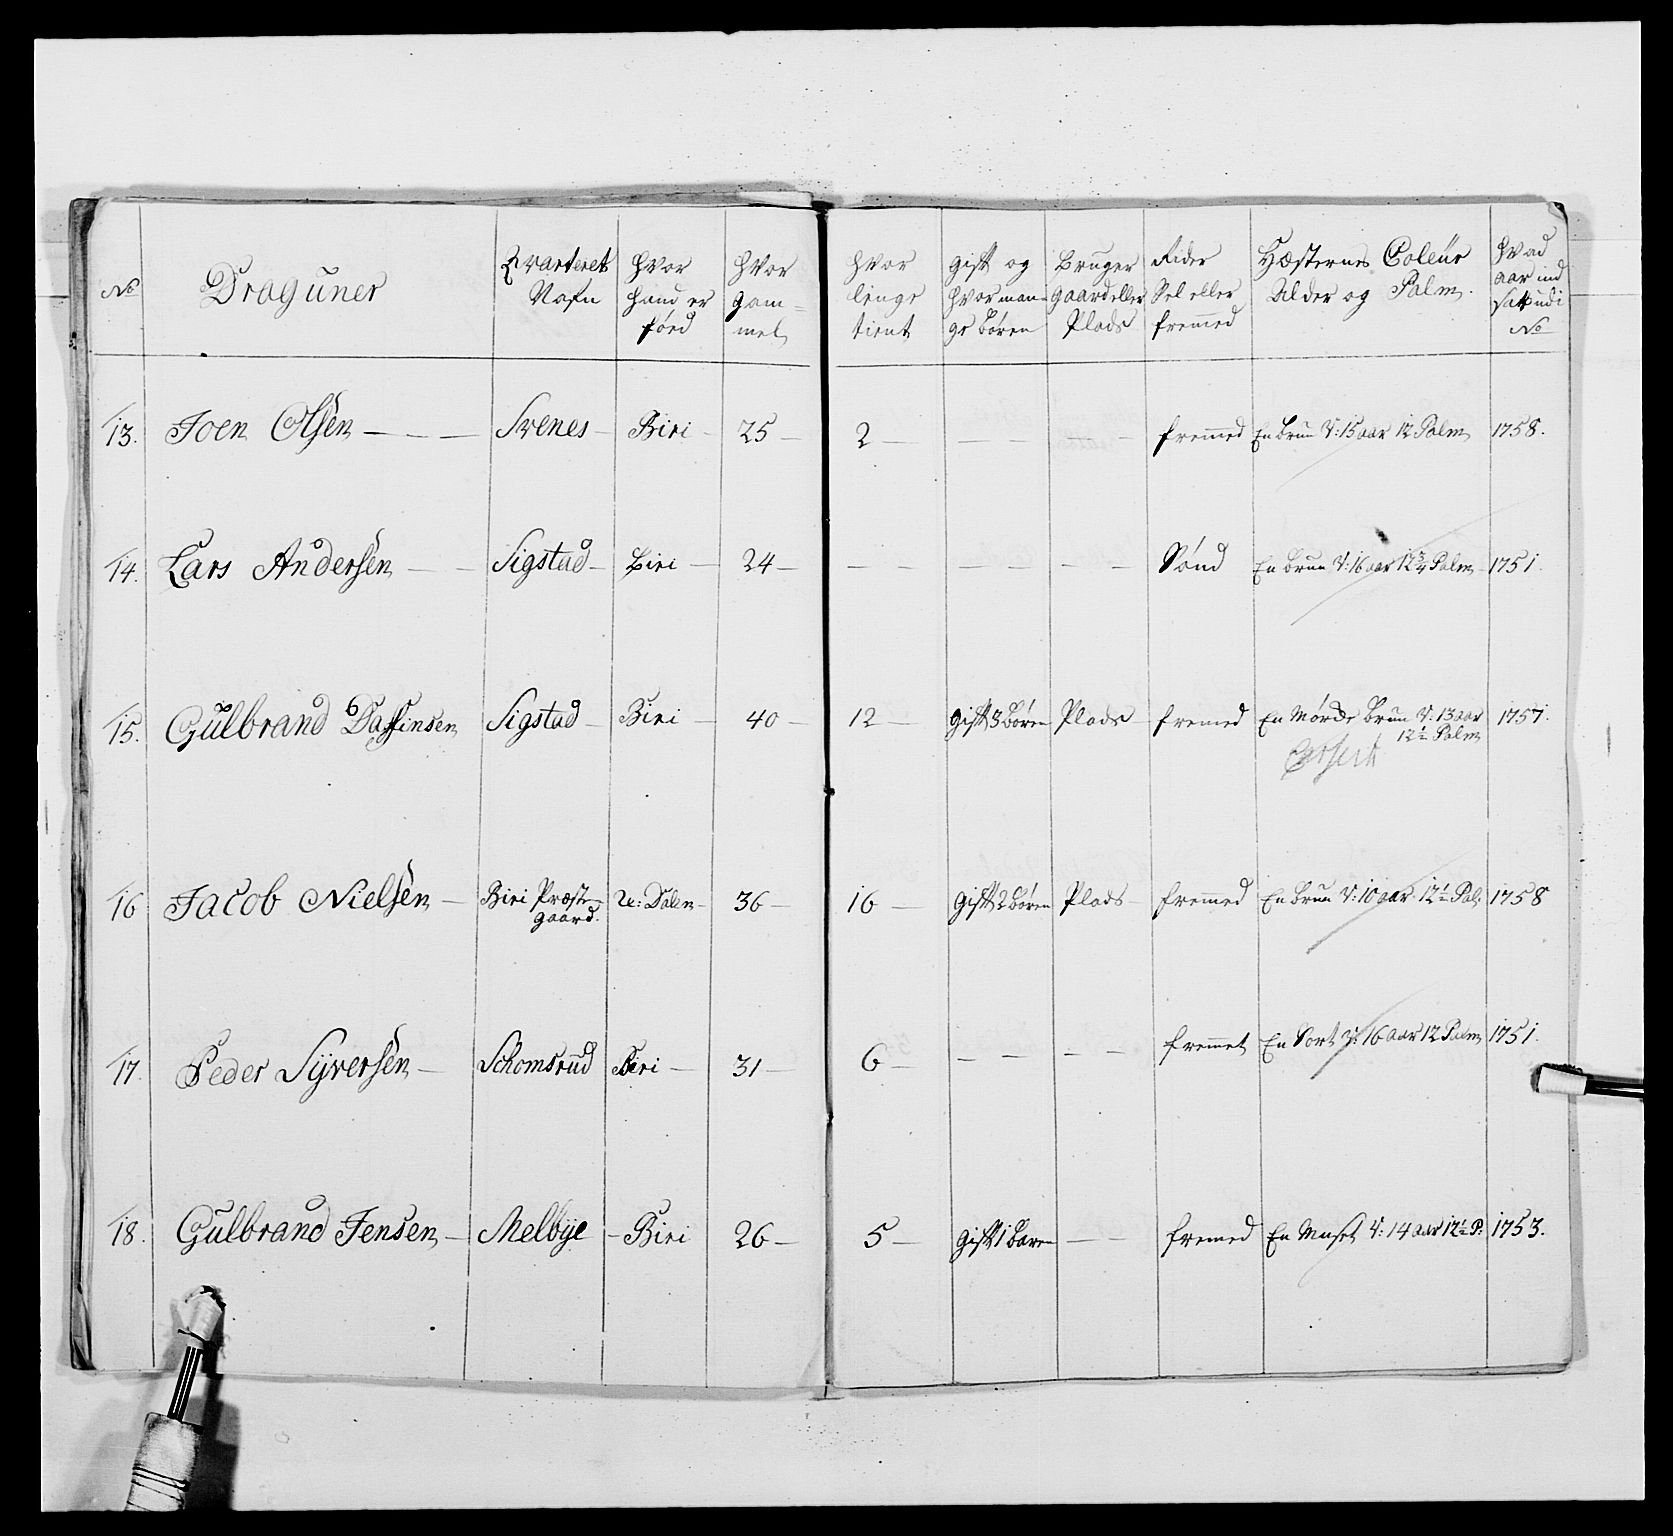 No Draguner Qvarteret Nafn hvor hand er föed hvor gam= mel hvor lenge tient gift og hvor man= ge bören bruger Gaard eller Plads Rider Sel eller fremmed Hæsternes Coleur Alder og Palm. hvad aar ind sat udi No
13. Joen Olsen — — — Svenes — Biri — 25 — 2 — — — — fremmed En brun V: 15 aar 12 Palm 1758.
14. Lars Andersen — — Sigstad — Biri — 24 — — — — — — — Sönd En brun V: 16 aar 12 3/4 Palm 1751.
15. Gulbrand Sigstad — Biri — 40 — 12 — gift 3 bören Plads — fremed En Mörde brun V: 13 aar 1757.
12 1/2 Palm
16 Jacob Nielsen — Biri Præste= Dalen — 36 — 16 — gift 2 bören Plads — fremmed En brun V: 10 aar 12 1/2 Pal: 1758
gaard.
17. Peder Syversen — Schomsrud Biri — 31 — 6 — — — — — fremmet En Sort V: 16 aar 12 Palm 1751.
18. Gulbrand Jensen — Melbye — Biri 26 — 5 — gift 1 baren — — fremed En V: 14 aar 12 1/2 P: 1753.